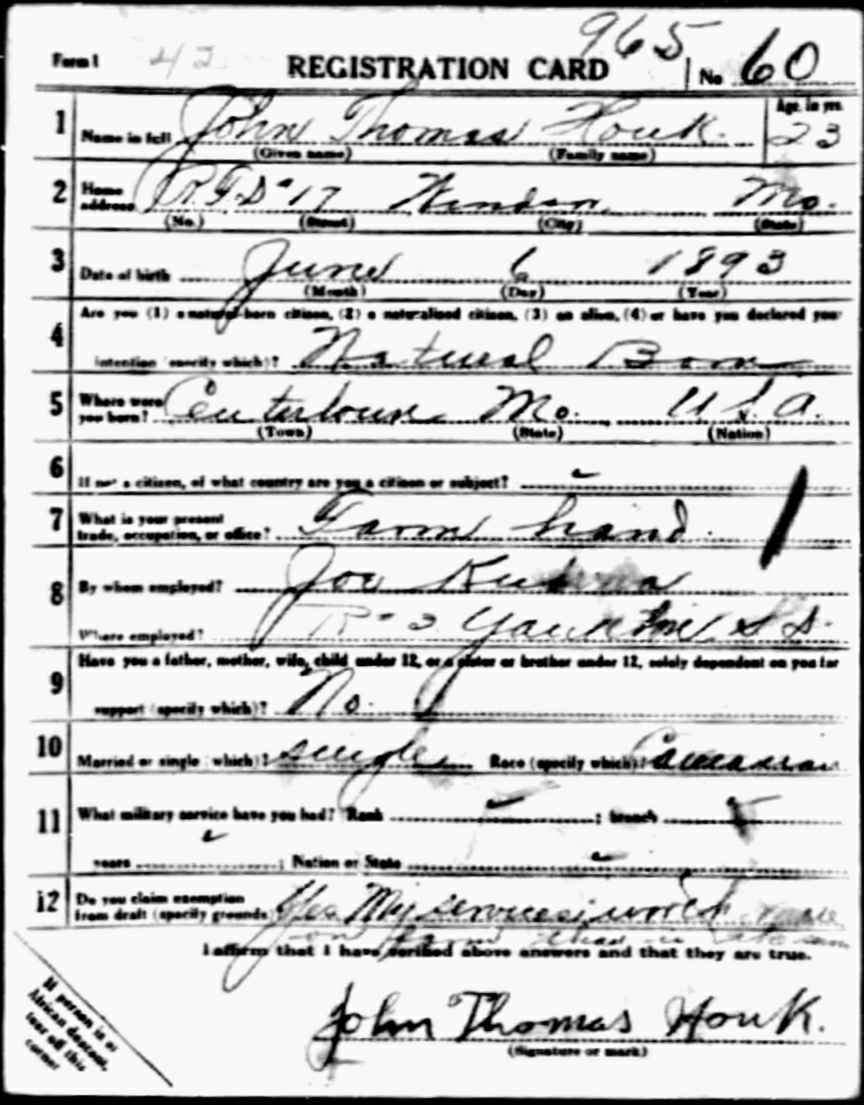 965
Form 1 42 REGISTRATION CARD No 60
1 Name in full John Thomas Houk. Age, in yrs. 23
(Given name) (Family name)
2 Home address R.F.D #17 Windsor Mo.
(No.) (Street) (City) (State)
3 Date of birth June 6 1893
(Month) (Day) (Year)
Are you (1) a natural-born citizen, (2) a naturalized citizen, (3) an alien, (4) or have you declared your
4 intention (specify which)? Natural Born
5 Where were you born? Centertown Mo. U.S.A.
(Town) (State) (Nation)
6 If not a citizen, of what country are you a citizen or subject?
7 What is your present trade, occupation, or office? Farm hand.
8 By whom employed? Joe
Where employed? Yankton S D.
Have you a father, mother, wife, child under 12, or a sister or brother under 12, solely dependent on you for
9 support (specify which)? No.
10 Married or single (which)? single Race (specify which)? Caucasian
11 What military service have you had? Rank ; branch
years ; Nation or State
12 Do you claim exemption from draft (specify grounds)? Yes My services worth more
on farm than
I affirm that I have verified above answers and that they are true.
John Thomas Houk.
(Signature or mark)
If person is of
African descent,
tear off this
corner